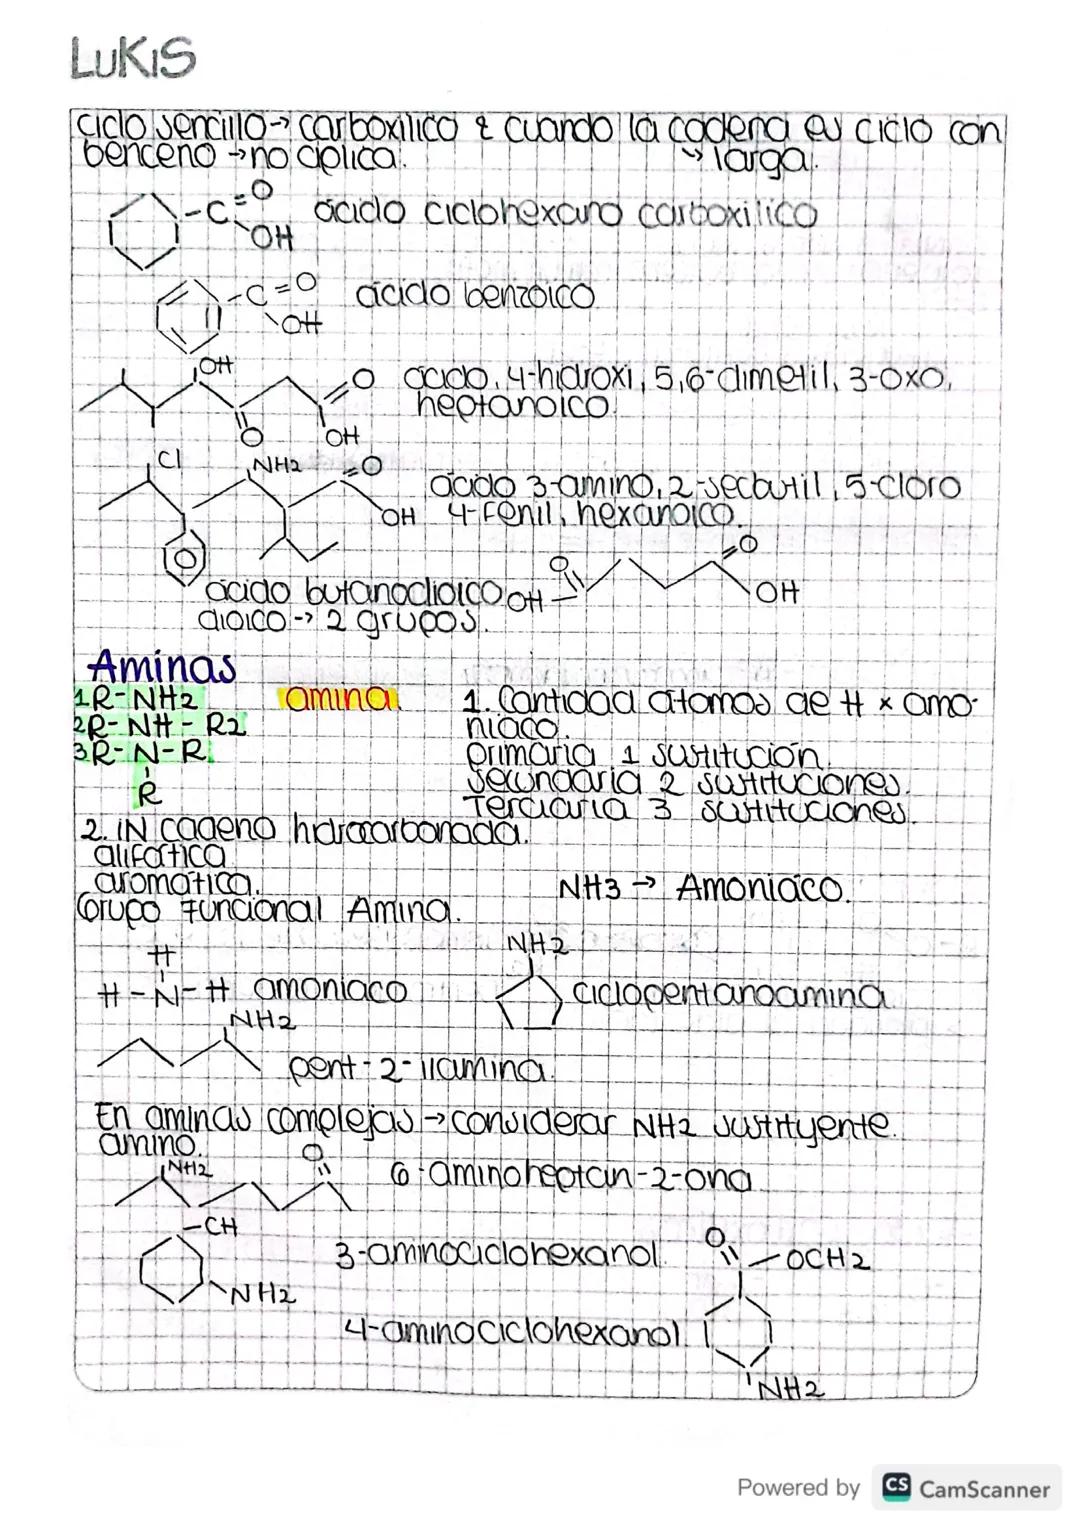 LUKIS
ciclo sencillo → carboxilico & cuando la cadena es ciclo con
benceno → no aplica. ↳ larga.
-C=O
OH
ácido ciclohexano carboxilico
-C=O
OH
ácido benzoico
OH
O
O
OH
ácido, 4-hidroxi, 5,6-dimetil, 3-oxo,
heptanoico.
Cl
NH2
=O
OH
ácido 3-amino, 2-secbutil, 5-cloro
4-Fenil, hexanoico.
ácido butanodioico
OH
O
O
OH
dioico → 2 grupos.
Aminas
1R-NH2
amina
1. Cantidad átomos de H x amo-
2R-NH-R2
niaco.
3R-N-R
R
primaria 1 sustitución.
secundaria 2 sustituciones.
Terciaria 3 sustituciones.
2. IN cadena hidrocarbonada.
alifática
aromática.
NH3 → Amoniaco.
Grupo Funcional Amina.
H
H-N-H amoniaco
NH2
ciclopentanoamina
NH2
pent-2-ilamina.
En aminas complejas → considerar NH2 sustityente.
amino.
NH2
O
6-aminoheptan-2-ona
-CH
NH2
3-aminociclohexanol.
O
-OCH2
4-aminociclohexanol.
NH2
Powered by CS CamScanner